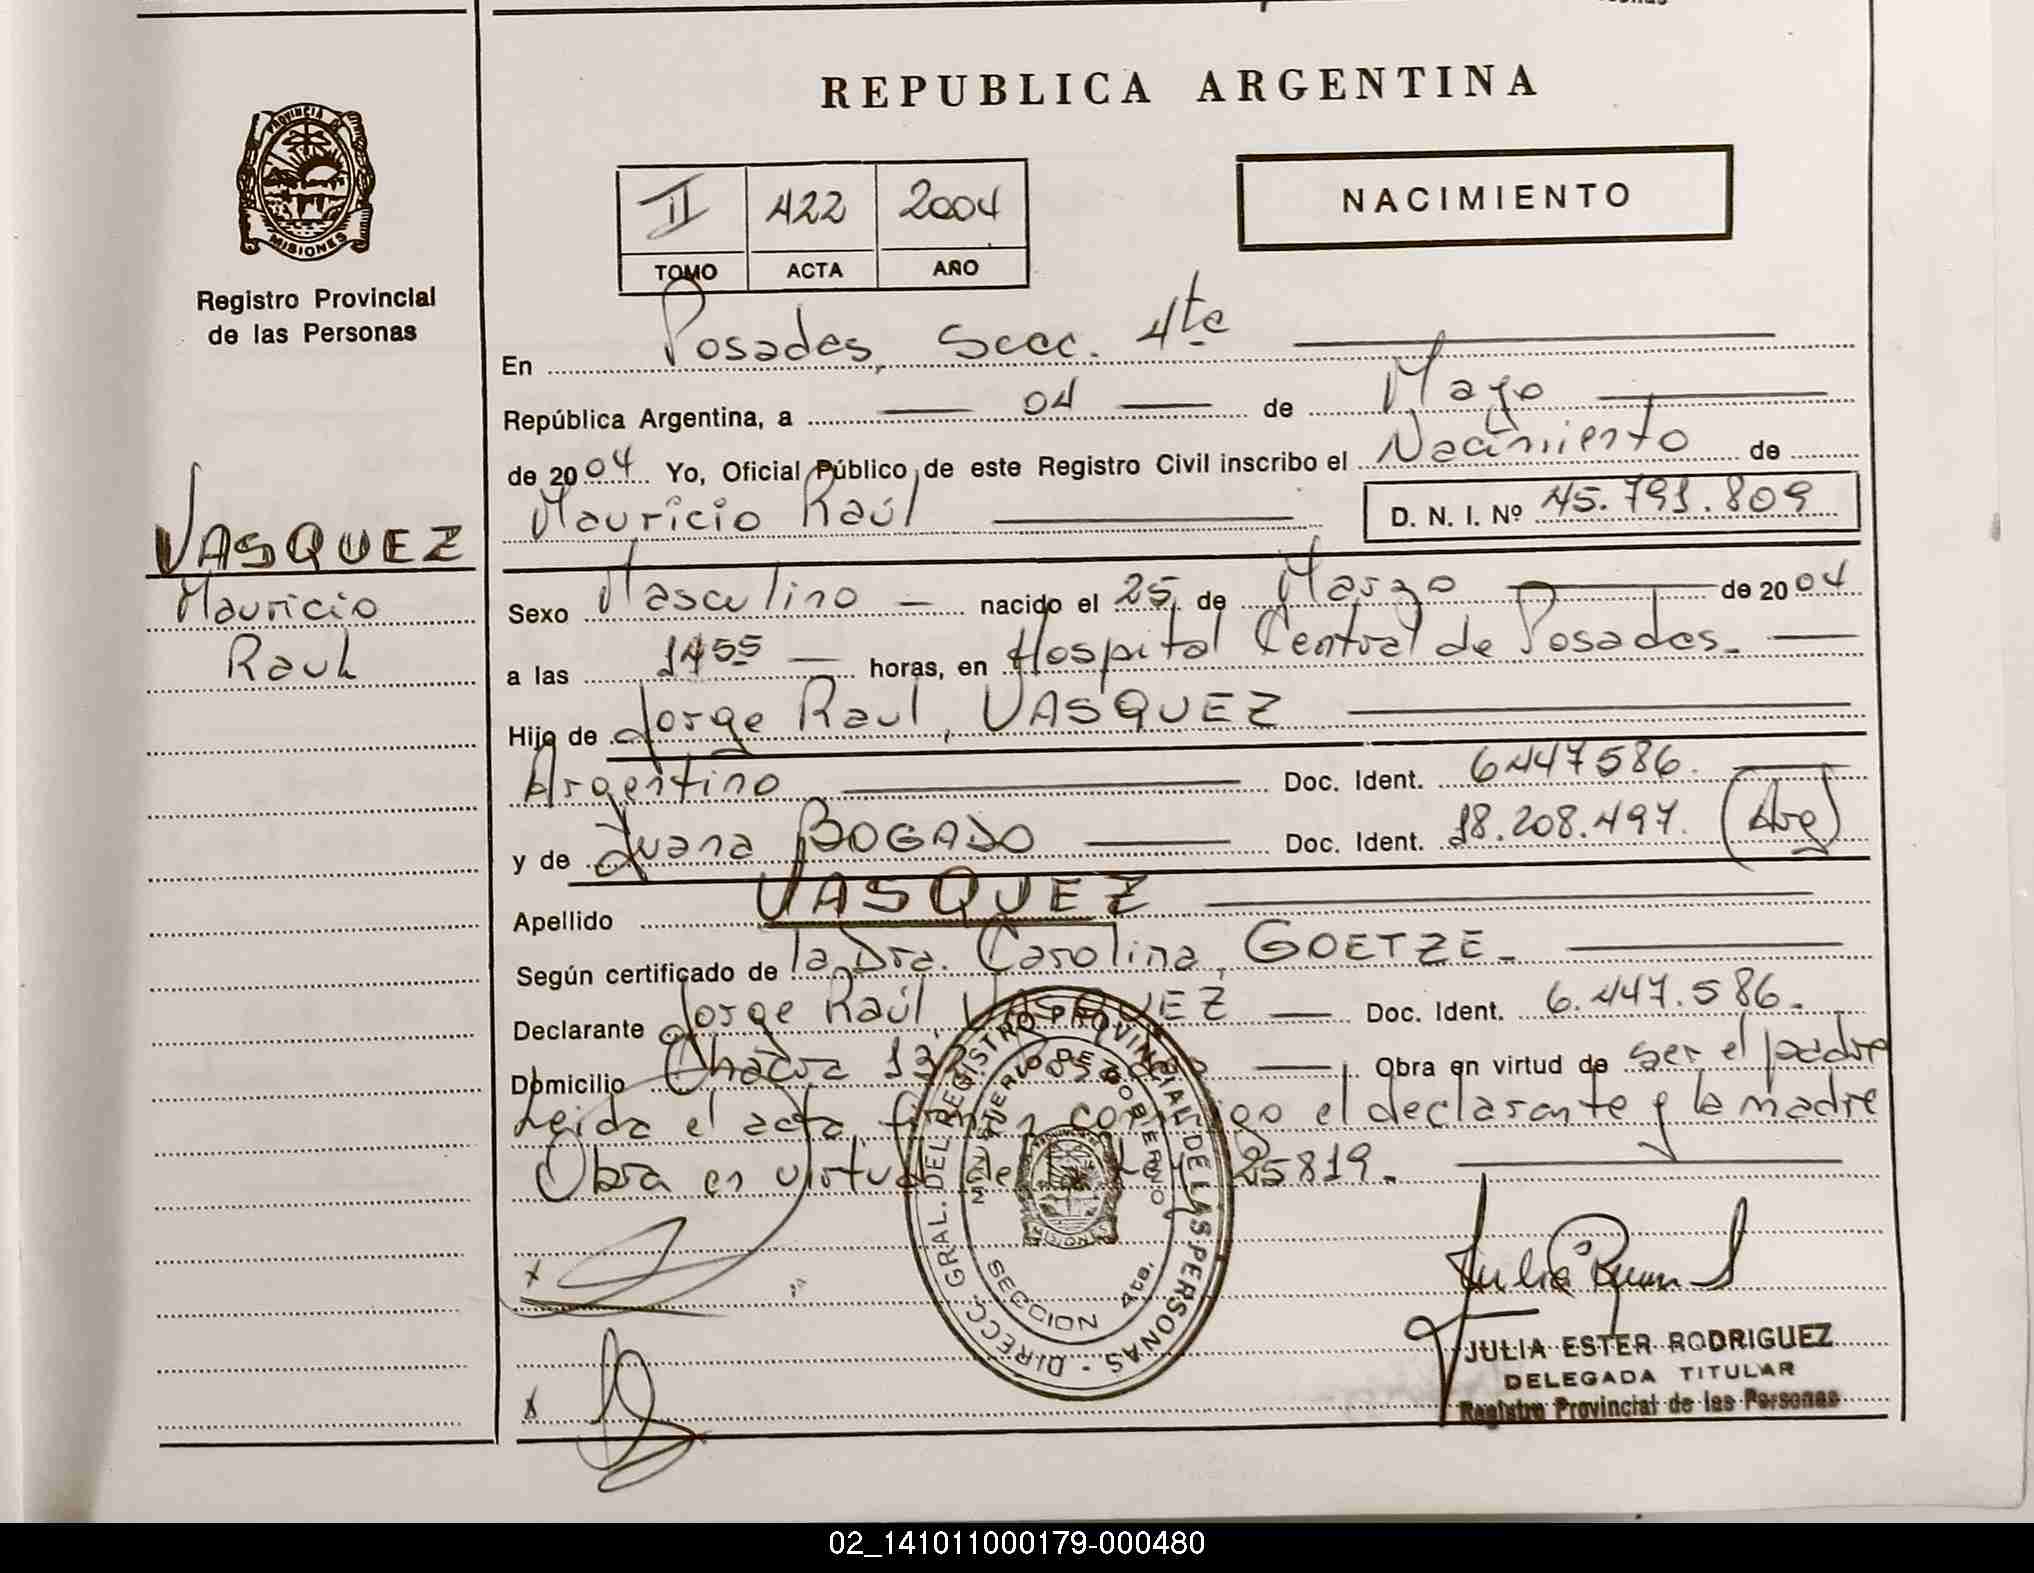 REPUBLICA ARGENTINA
PROVINCIA DE
MISIONES
Registro Provincial
de las Personas
II 422 2004
TOMO ACTA AÑO
NACIMIENTO
En Posadas, Secc. 4ta
República Argentina, a 04 de Mayo
de 2004 Yo, Oficial Público de este Registro Civil inscribo el Nacimiento de
Mauricio Raúl D. N. I. Nº 45.791.809
VASQUEZ
Mauricio
Raul
Sexo Masculino nacido el 25 de Marzo de 2004
a las 1455 horas, en Hospital Central de Posadas.
Hijo de Jorge Raul, VASQUEZ
Argentino Doc. Ident. 6447586.
y de Juana BOGADO Doc. Ident. 18.208.497. (Arg)
Apellido VASQUEZ
Según certificado de la Dra. Carolina, GOETZE.
Declarante Jorge Raúl, VASQUEZ Doc. Ident. 6.447.586.
Domicilio Chacra Obra en virtud de ser el padre
Leida el acta, firman conmigo el declarante y la madre
Obra en virtud de 25819.
DIRECC. GRAL. DEL REGISTRO PROVINCIAL DE LAS PERSONAS
MINISTERIO DE GOBIERNO
MISIONES
SECCION 4ta.
x
x
JULIA ESTER RODRIGUEZ
DELEGADA TITULAR
Registro Provincial de las Personas
02_141011000179-000480